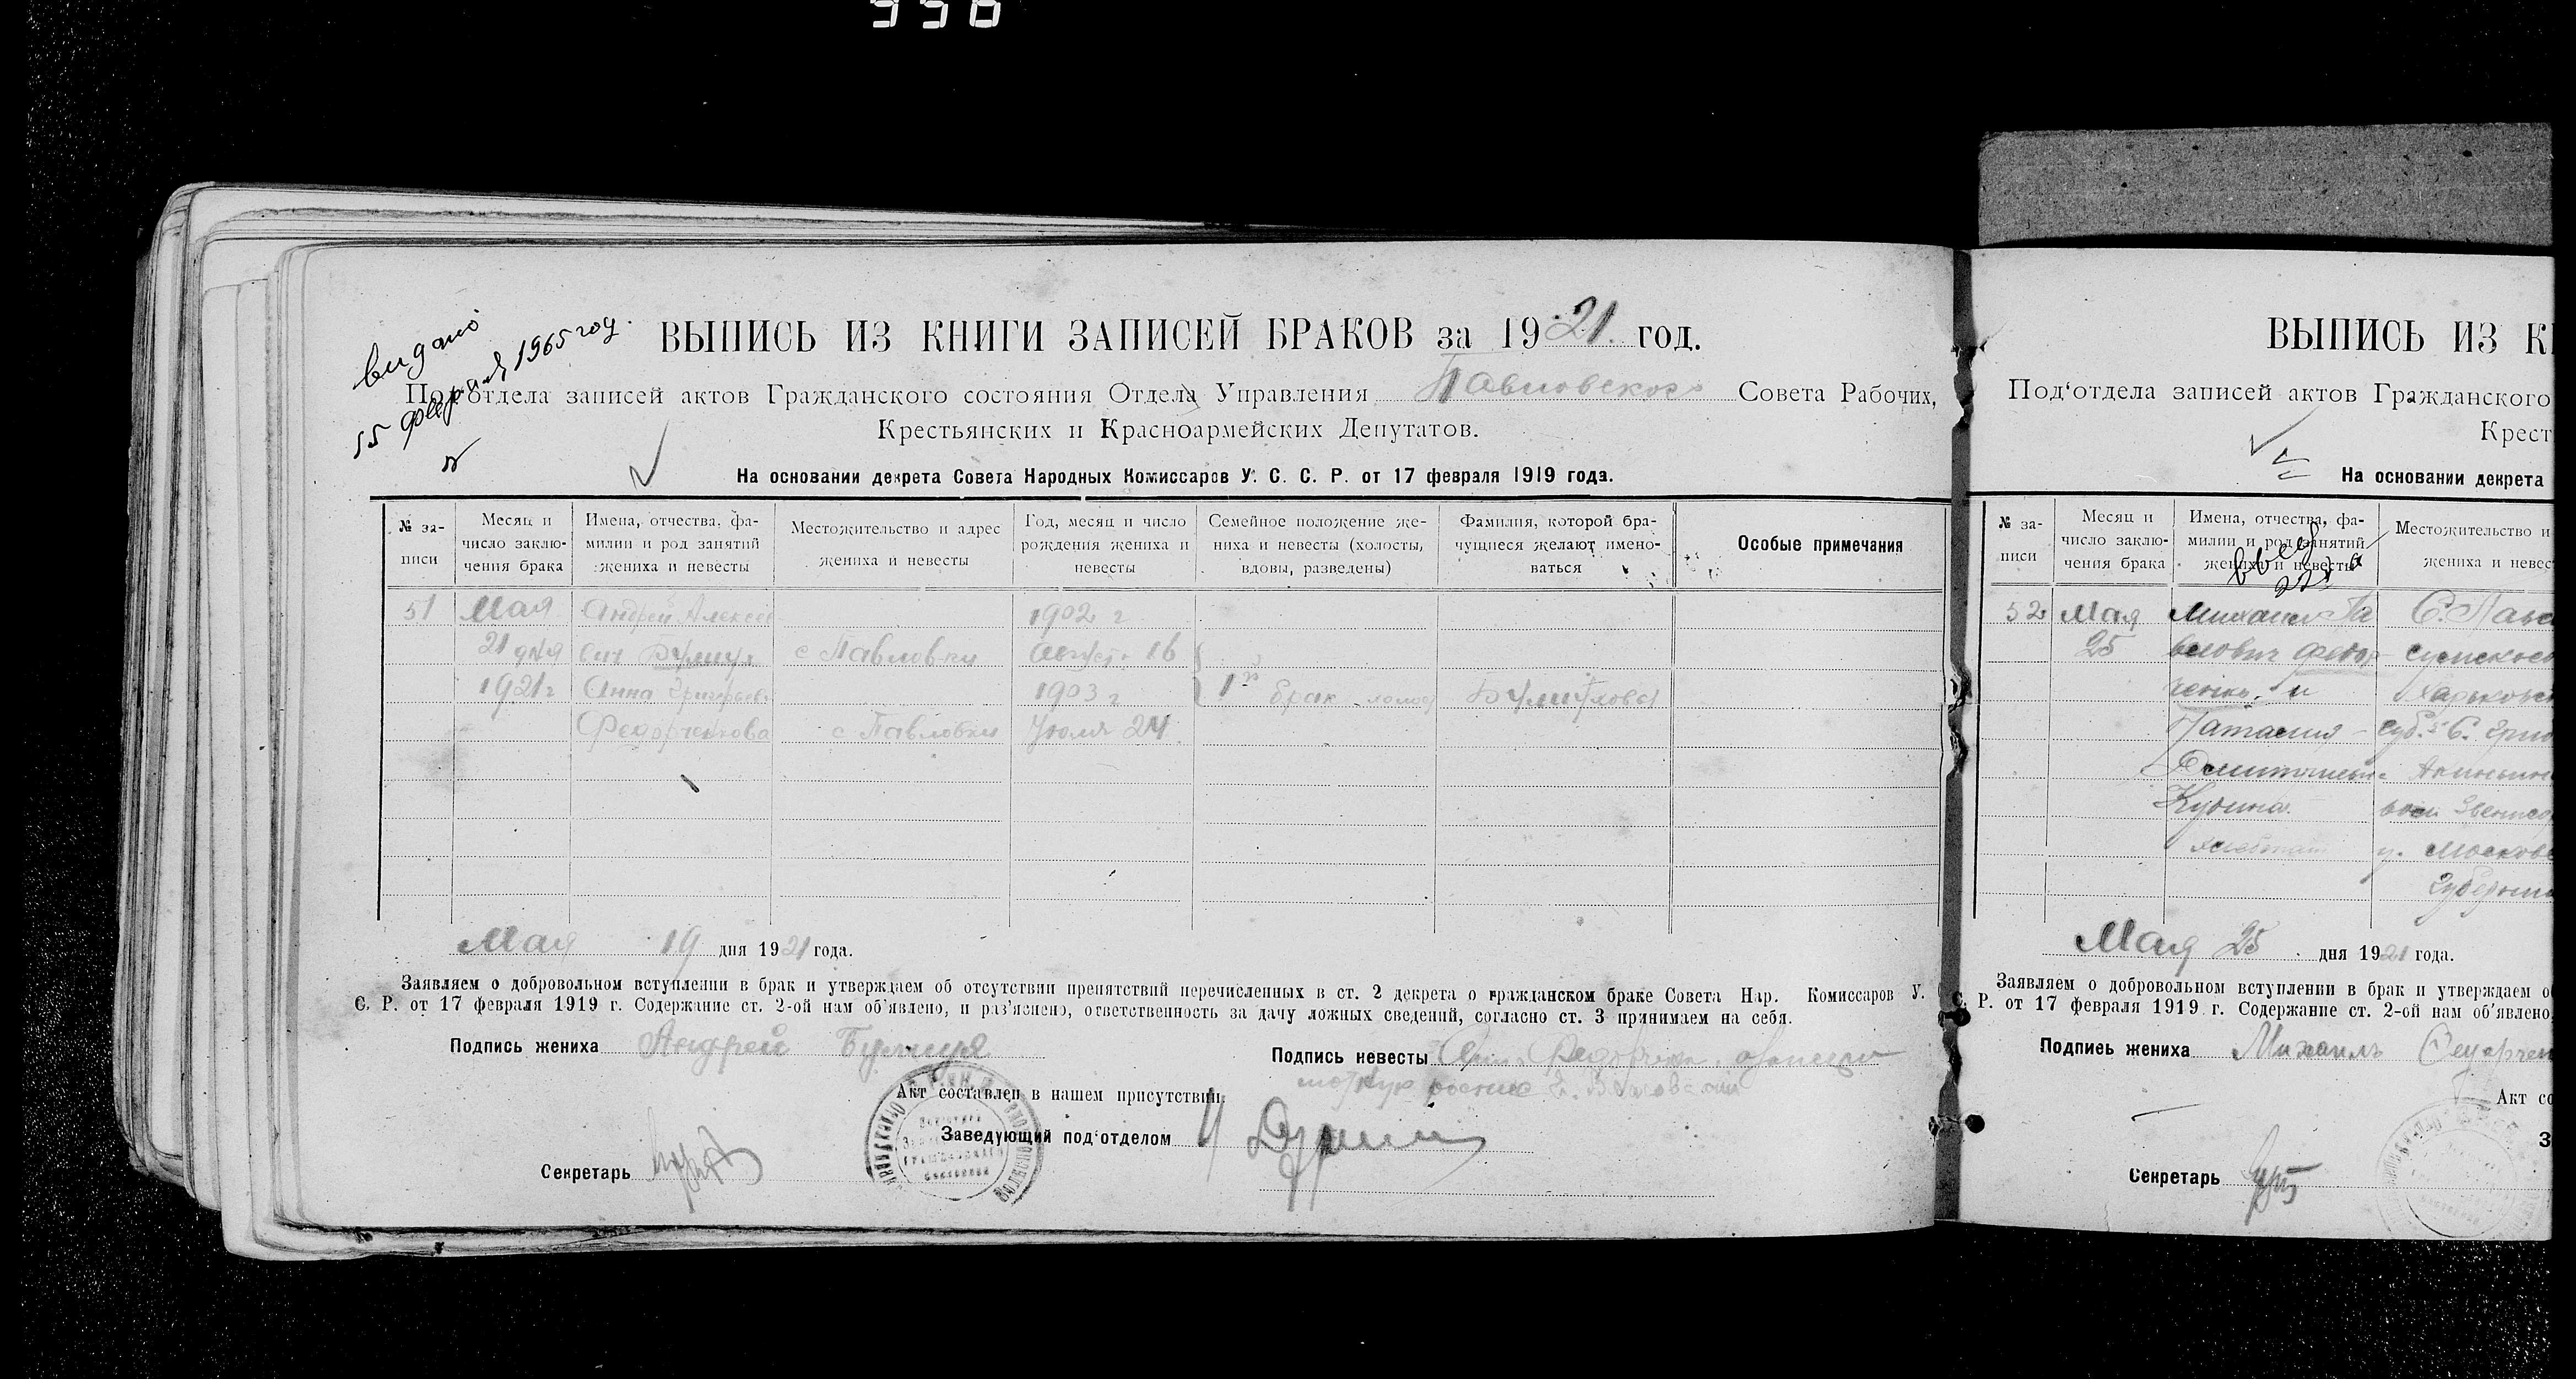 видано
15 февраля 1965 год.
ВЫПИСЬ ИЗ КНИГИ ЗАПИСЕЙ БРАКОВ за 1921 год.
Под'отдела записей актов Гражданского состояния Отдела Управления Павловского Совета Рабочих,
Крестьянских и Красноармейских Депутатов.
На основании декрета Совета Народных Комиссаров У. С. С. Р. от 17 февраля 1919 года.
№ за-
писи
Месяц и
число заклю-
чения брака
Имена, отчества, фа-
милии и род занятий
жениха и невесты
Местожительство и адрес
жениха и невесты
Год, месяц и число
рождения жениха и
невесты
Семейное положение же-
ниха и невесты (холосты,
вдовы, разведены)
Фамилия, которой бра-
чущиеся желают имено-
ваться
Особые примечания
51 Мая Андрей Алексее 1902 г
21 дня вич с Павловки Август 16
1921 г Анна Григорьевн 1903 г 1й брак
Федорченкова с Павловки Июля 24
Мая 19 дня 1921 года.
Заявляем о добровольном вступлении в брак и утверждаем об отсутствии препятствий перечисленных в ст. 2 декрета о гражданском браке Совета Нар. Комиссаров У.
С. Р. от 17 февраля 1919 г. Содержание ст. 2-ой нам об'явлено, и раз'яснено, ответственность за дачу ложных сведений, согласно ст. 3 принимаем на себя.
Подпись жениха Андрей
Подпись невесты
Акт составлен в нашем присутствии:
Заведующий под'отделом
Секретарь
ВЫПИСЬ ИЗ К
Под'отдела записей актов Гражданского
Крест
На основании декрета
№ за-
писи
Месяц и
число заклю-
чения брака
Имена, отчества, фа-
милии и род занятий
жениха и невесты
Местожительство и
жениха и невес
52 Мая Михаил Па С. Павл
25 влович Федор
ченко и Харьковск
Наталия
Кудина
у. Московс
Губернии
Мая 25 дня 1921 года.
Заявляем о добровольном вступлении в брак и утверждаем о
Р. от 17 февраля 1919 г. Содержание ст. 2-ой нам об'явлено,
Подпись жениха Михаилъ Федорчен
Акт со
З
Секретарь